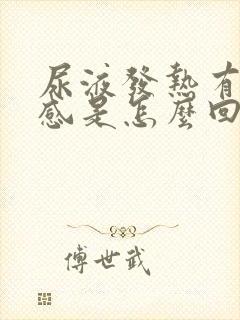 尿液發熱有
感是怎麼回
傅世武